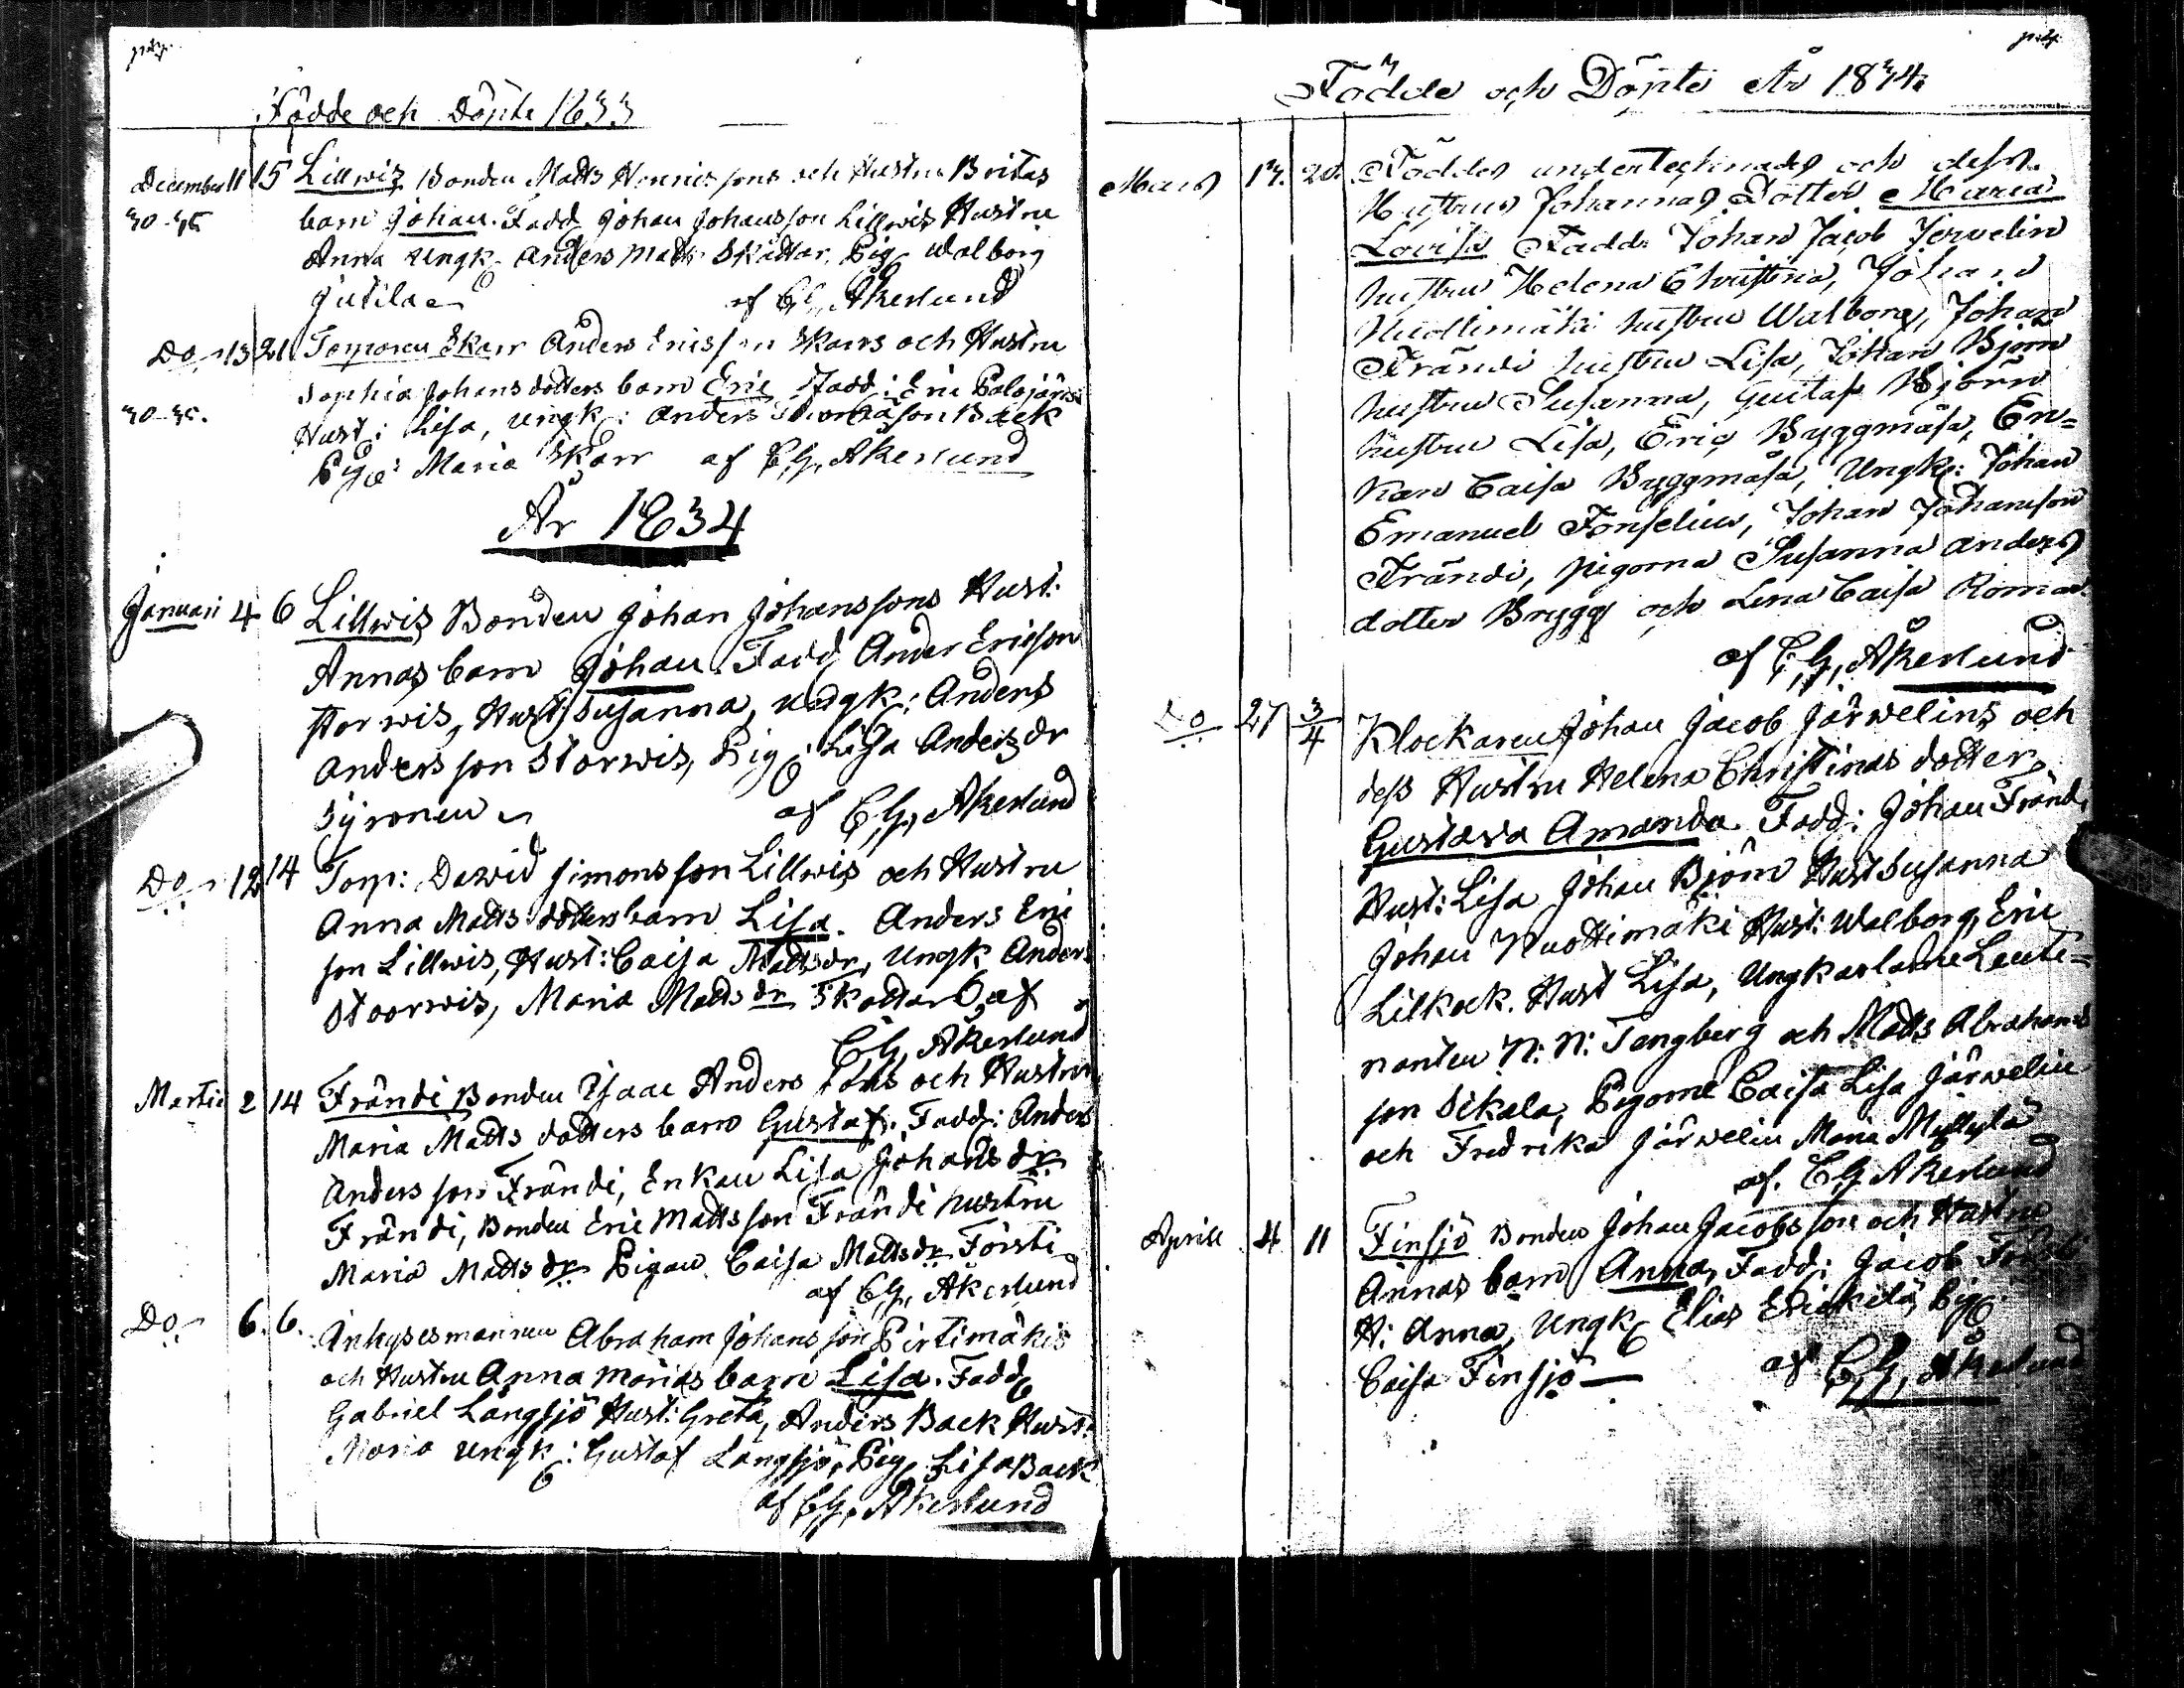 Födde och Döpte 1833
December 11 15 Lillwis Bonden Matts Hennics sons och Hustru Britas
30-35 barn Johan. Fadd Johan Johansson Lillwis Hustru
Anna Ungk. Anders Matts Skattar, Pig Walborg
Jutila
af C,G, Åkerlund
Do 13 21 Torparen Skarr Anders Ericsson Skarrs och Hustru
Sophia Johansdotters barn Eric Fadd: Eric Palojärvi
30-35. Hust: Lisa, Ungk: Anders Thomasson Back
Piga Maria Skarr af C,G, Åkerlund
År 1834
Januari 4 6 Lillwis Bonden Johan Johanssons Hust:
Annas barn Johan. Fadd Ander Ericson
Storwis, Hust Susanna, Ungk: Anders
Andersson Storwis, Pig: Lisa Anders dr
Syronen
af C,G, Åkerlund
Do 12 14 Torp: Dawid Simonsson Lillwis och Hustru
Anna Matts dotters barn Lisa. Anders Eric
son Lillwis, Hust: Caisa Matts dr, Ungk Anders
Stoorwis, Maria Matts dr Skattar af
C,G, Åkerlund
Martii 2 14 Frändi Bonden Isaac Anders sons och Hustru
Maria Matts dotters barn Gustaf. Fadd: Anders
Andersson Frändi, Enkan Lisa Johans dr
Frändi, Bonden Eric Mattsson Frändi hustru
Maria Matts dr Pigan Caisa Matts dr Försti
af C,G, Åkerlund
Do 6. 6. Inhysesmannen Abraham Johansson Pirtimäkis
och Hustru Anna Marias barn Lisa. Fadd
Gabriel Långsjö Hust: Greta, Anders Back Hust:
Maria Ungk: Gustaf Långsjö, Pig Lisa Back
af C,G, Åkerlund
Födde och Döpte År 1834.
Mars 17. 20. Föddes undertecknads och dess
Hustrus Johannas Dotter Maria
Lovisa Fadd: Johan Jacob Jerwelin
hustru Helena Christina, Johan
Nuottimäki hustru Walborg, Johan
Frändi hustru Lisa, Johan Björn
hustru Susanna, Gustaf Björn
hustru Lisa, Eric Byggmäsa, En=
kan Caisa Byggmäsa, Ungk: Johan
Emanuel Fonselius, Johan Johansson
Frändi, pigorna Susanna Anders
dotter Brygg och Lena Caisa Roma
af C,G, Åkerlund
Do 27 3/4 Klockaren Johan Jacob Järwelins och
dess Hustru Helena Christinas dotter
Gustava Amanda Fadd: Johan Fränd,
Hust: Lisa Johan Björn Hust Susanna
Johan Nuottimäki Hust: Walborg, Eric
Lilkock. Hust Lisa, Ungkarlarne Leute=
nanten N: N: Tengberg och Matts Abrahams
son Sikala, Pigorne Caisa Lisa Järwelin
och Fredrika Järwelin Maria Myllylä
af. C,G Åkerlund
Aprill 4 11 Finsjö Bonden Johan Jacobsson och Hustru
Annas barn Anna, Fadd: Jacob
H: Anna, Ungk Elias Pig
Caisa Finsjö —
af C,G, Åkerlund